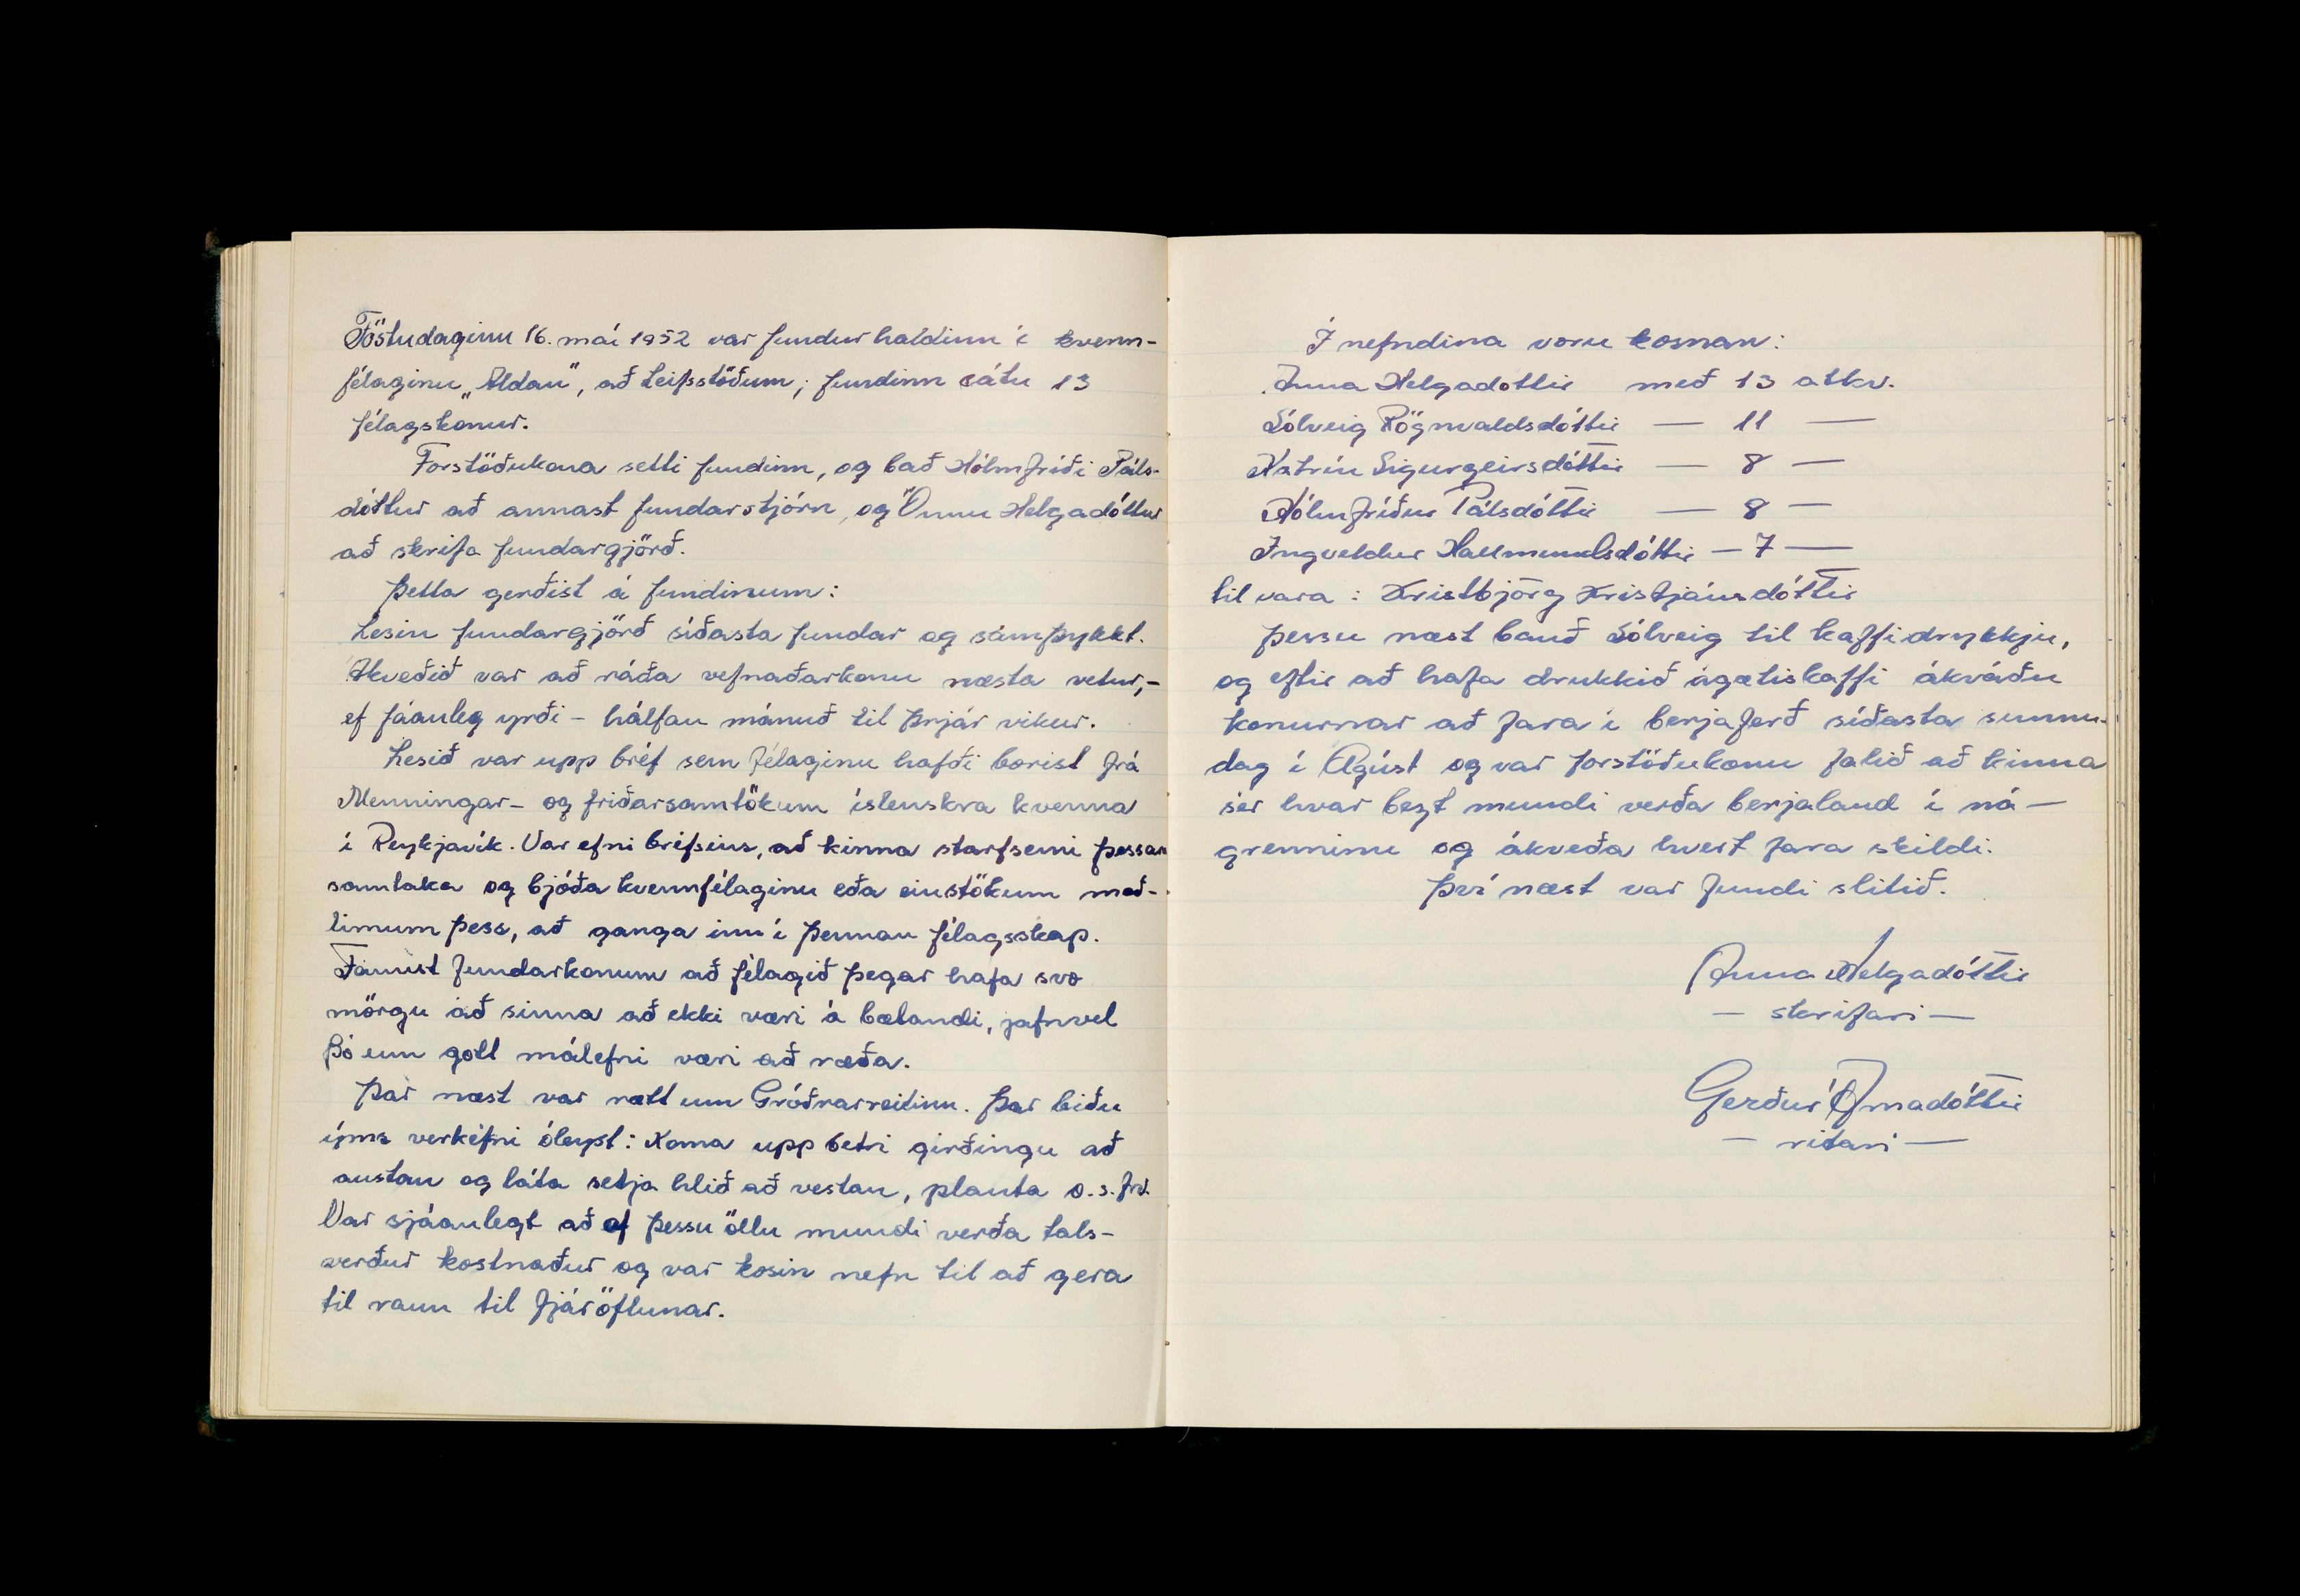 Föstudaginn 16. maí 1952 var fundur haldinn í kvenn-
félaginu „Aldan", að Leifsstöðum; fundinn sátu 13
félagskonur.
Forstöðukona setti fundinn, og bað Hólmfríði Páls-
dóttur að annast fundarstjórn, og Önnu Helgadóttur
að skrifa fundargjörð.
Þetta gerðist á fundinum:
Lesin fundargjörð síðasta fundar og samþykkt.
Ákveðið var að ráða vefnaðarkonu næsta vetur,-
ef fáanleg yrði - hálfan mánuð til þrjár vikur.
Lesið var upp bréf sem félaginu hafði borist frá
Menningar- og friðarsamtökum íslenskra kvenna
í Reykjavík. Var efni bréfsins, að kinna starfsemi þessara
samtaka og bjóða kvennfélaginu eða einstökum með-
limum þess, að ganga inn í þennan félagsskap.
Fannst fundarkonum að félagið þegar hafa svo
mörgu að sinna að ekki væri á bætandi, jafnvel
þó um gott málefni væri að ræða.
Þar næst var rætt um Gróðrarreitinn. Þar biðu
ýms verkefni óleyst: Koma upp betri girðingu að
austan og láta setja hlið að vestan, planta o.s.frv.
Var sjáanlegt að af þessu öllu mundi verða tals-
verður kostnaður og var kosin nefn til að gera
til raun til fjáröflunar.
Í nefndina voru kosnar:
Anna Helgadóttir með 13 atkv.
Sólveig Rögnvaldsdóttir — 11 —
Katrín Sigurgeirsdóttir — 8 —
Hólmfríður Pálsdóttir — 8 —
Ingveldur Hallmundsdóttir — 7 —
til vara : Kristbjörg Kristjánsdóttir
Þessu næst bauð Sólveig til kaffidrykkju,
og eftir að hafa drukkið ágætiskaffi ákváðu
konurnar að fara í berjaferð síðasta sunnu-
dag í Ágúst og var forstöðukonu falið að kinna
sér hvar bezt mundi verða berjaland í ná-
grenninu og ákveða hvert fara skildi.
Því næst var fundi slitið.
Anna Helgadóttir
- skrifari -
Gerður Árnadóttir
- ritari -